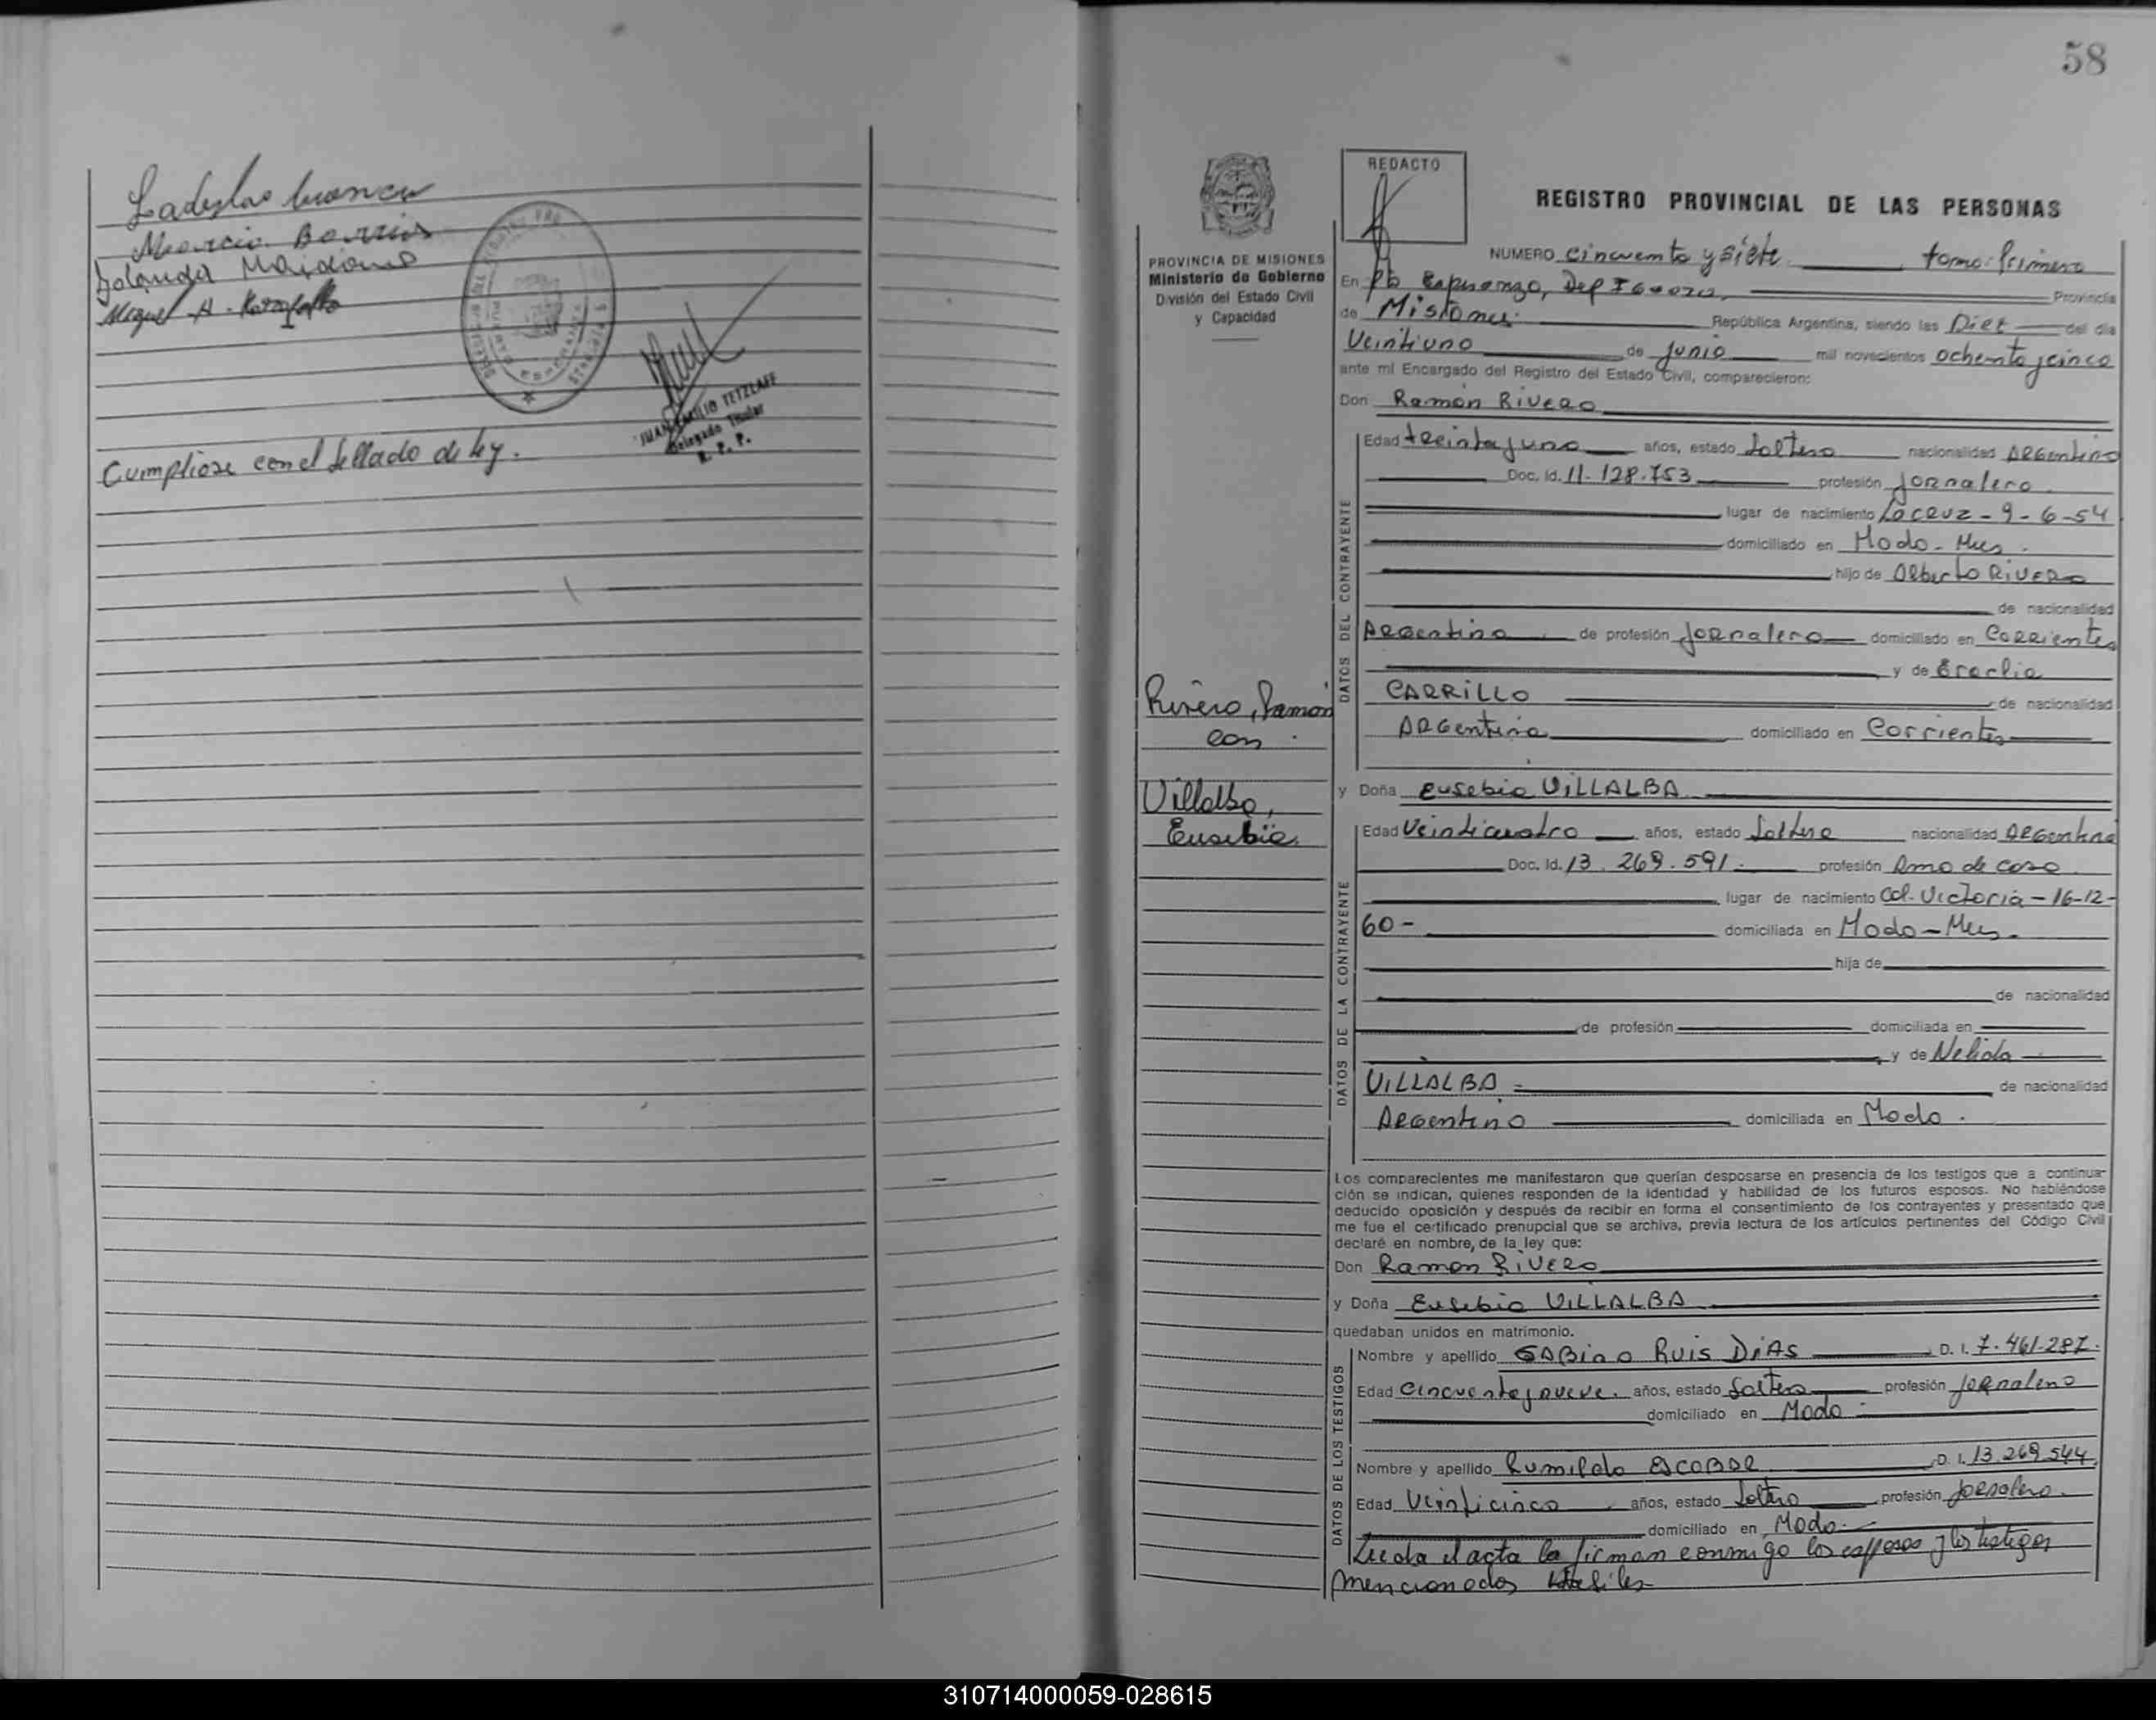 Ladislao
Marcio Barrios
Yolanda Maidana
Miguel A.
JUAN EMILIO TETZLAFF
Delegado Titular
R. P. P.
Cumpliose con el sellado de ley.
58
REDACTO
REGISTRO PROVINCIAL DE LAS PERSONAS
PROVINCIA DE MISIONES
Ministerio de Gobierno
División del Estado Civil
y Capacidad
NUMERO cincuenta y siete tomo: Primero
En Pto Esperanza, Dep Iguazu, Provincia
de Misiones. República Argentina, siendo las Diez del día
Veintiuno de Junio mil novecientos ochenta y cinco
ante mí Encargado del Registro del Estado Civil, comparecieron:
Don Ramón RIVERO
DATOS DEL CONTRAYENTE
Edad treinta y uno años, estado Soltero nacionalidad ARGentino
Doc. Id. 11.128.753 profesión Jornalero
lugar de nacimiento La CRUZ - 9-6-54
domiciliado en Mado - Mnes.
hijo de Alberto RIVERO
de nacionalidad
ARGentina de profesión Jornalero domiciliado en Corrientes
y de Eraclia
CARRILLO de nacionalidad
ARGentina domiciliado en Corrientes
Rivero, Ramon
con
Villalba,
Eusebia.
y Doña Eusebia VILLALBA
DATOS DE LA CONTRAYENTE
Edad Veinticuatro años, estado Soltera nacionalidad ARGentina
Doc. Id. 13.269.591. profesión Ama de casa
lugar de nacimiento Col. Victoria - 16-12-
60- domiciliada en Mado - Mnes.
hija de
de nacionalidad
de profesión domiciliada en
y de Nelida
VILLALBA = de nacionalidad
ARGentina domiciliada en Mado.
Los comparecientes me manifestaron que querían desposarse en presencia de los testigos que a continua-
ción se indican, quienes responden de la identidad y habilidad de los futuros esposos. No habiéndose
deducido oposición y después de recibir en forma el consentimiento de los contrayentes y presentado que
me fue el certificado prenupcial que se archiva, previa lectura de los artículos pertinentes del Código Civil
declaré en nombre, de la ley que:
Don Ramon RIVERO
y Doña Eusebia VILLALBA
quedaban unidos en matrimonio.
DATOS DE LOS TESTIGOS
Nombre y apellido GABINO RUIS DIAS D. I. 7.461.287.
Edad Cincuenta y nueve. años, estado Soltero profesión Jornalero
domiciliado en Mado
Nombre y apellido Rumildo ESCOBAR D. I. 13.269.544
Edad Veinticinco años, estado Soltero profesión Jornalero.
domiciliado en Mado.
Leida el acta la firman conmigo los esposos y los testigos
mencionados
310714000059-028615